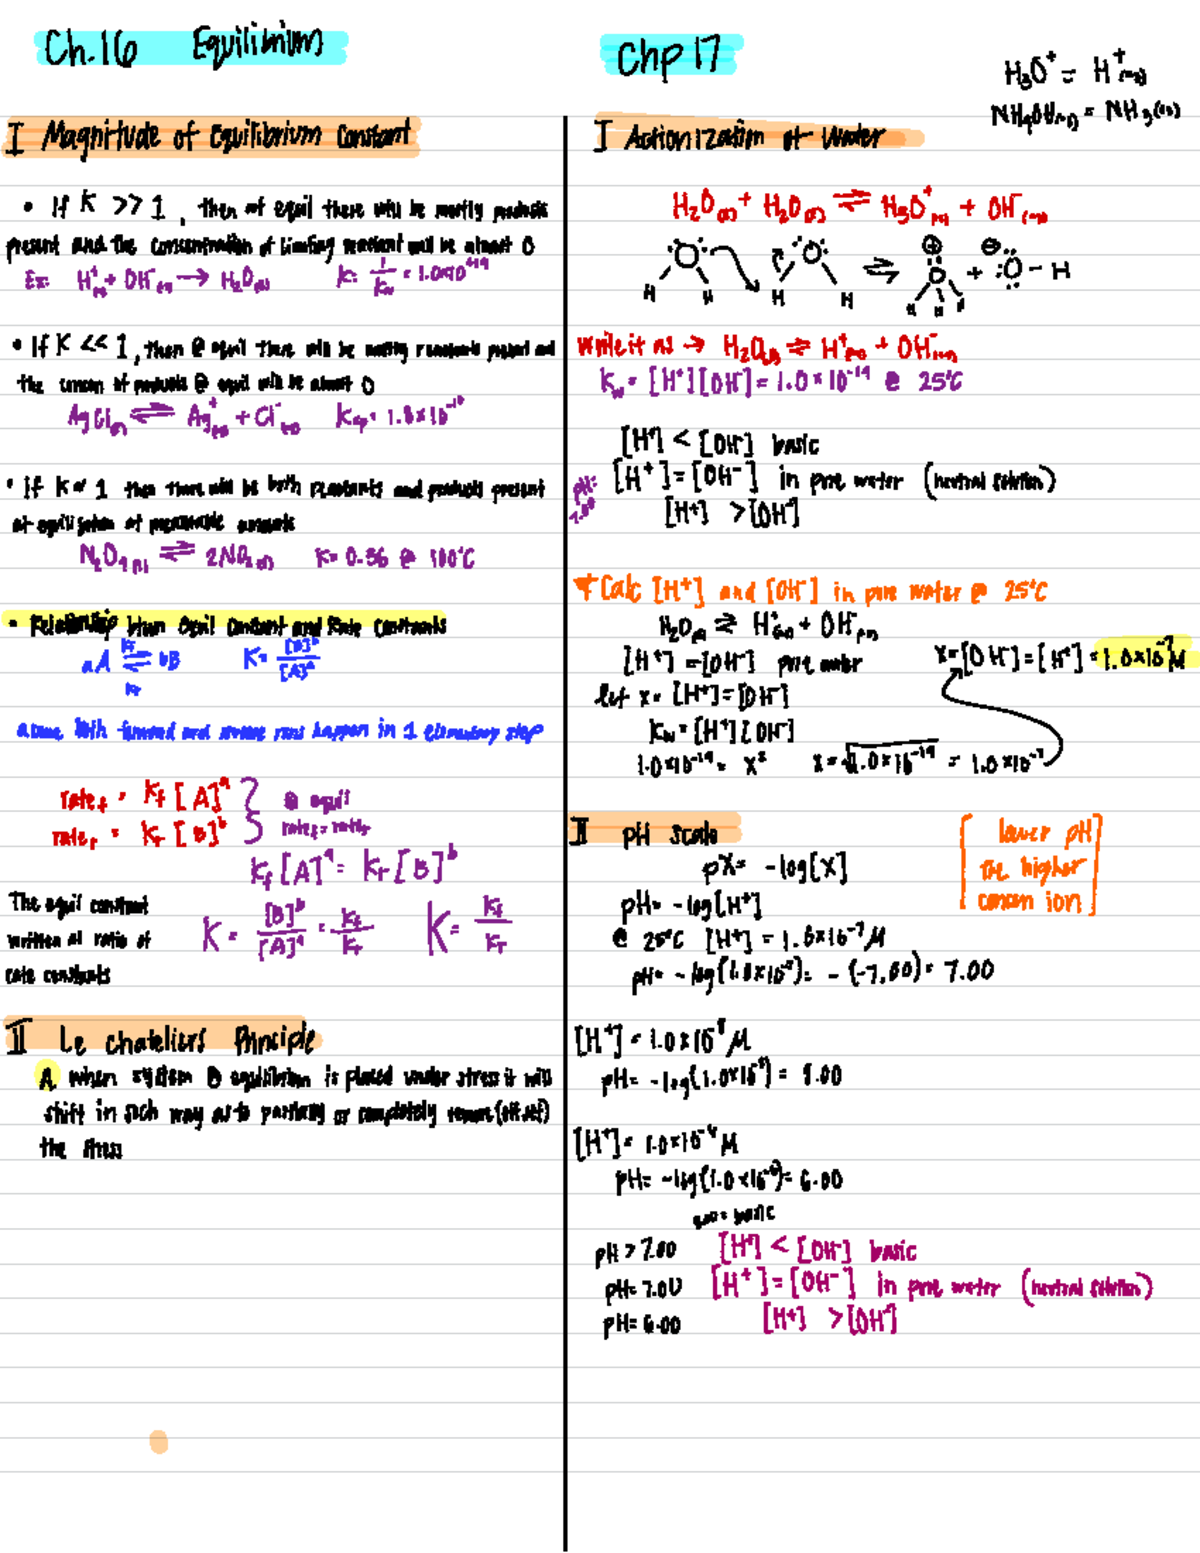 Ch.16 Equilibrium
I Magnitude of Equilibrium Constant
• If K >> 1, then at equil there will be mostly products
present and the concentration of limiting reactant will be almost 0
Ex: H⁺(aq) + OH⁻(aq) → H₂O(l) K = 1/Kw = 1.0×10⁺¹⁴
• If K << 1, then @ equil there will be mostly reactants present and
the concen of products @ equil will be almost 0
AgCl(s) ⇌ Ag⁺(aq) + Cl⁻(aq) Ksp = 1.8×10⁻¹⁰
• if K ≈ 1 then there will be both reactants and products present
at equilibrium at measurable amounts
N₂O₄(g) ⇌ 2NO₂(g) K = 0.36 @ 100°C
• Relationship btwn Equil Constant and Rate Constants
aA ⇌ bB K = [B]ᵇ/[A]ᵃ
kf
kr
assume both forward and reverse rxns happen in 1 elementary step
rate_f = Kf [A]ᵃ @ equil
rate_r = Kr [B]ᵇ rate_f = rate_r
Kf [A]ᵃ = Kr [B]ᵇ
The equil constant
written as ratio of
rate constants
K = [B]ᵇ/[A]ᵃ = Kf/Kr K = Kf/Kr
II Le chateliers Principle
A. when system @ equilibrium is placed under stress it will
shift in such way as to partially or completely remove (offset)
the stress
Chp 17
H₃O⁺ = H⁺(aq)
NH₄OH(aq) = NH₃(aq)
I Autionization of Water
H₂O(l) + H₂O(l) ⇌ H₃O⁺(aq) + OH⁻(aq)
H H H H ⇌ H H H + O - H
write it as → H₂O(l) ⇌ H⁺(aq) + OH⁻(aq)
Kw = [H⁺][OH⁻] = 1.0×10⁻¹⁴ @ 25°C
[H⁺] < [OH⁻] basic
pH = 7.00 [H⁺] = [OH⁻] in pure water (neutral solution)
[H⁺] > [OH⁻]
* Calc [H⁺] and [OH⁻] in pure water @ 25°C
H₂O(l) ⇌ H⁺(aq) + OH⁻(aq)
[H⁺] = [OH⁻] pure water x = [OH⁻] = [H⁺] = 1.0×10⁻⁷ M
let x = [H⁺] = [OH⁻]
Kw = [H⁺][OH⁻]
1.0×10⁻¹⁴ = x² x = √1.0×10⁻¹⁴ = 1.0×10⁻⁷
II pH scale
pX = -log[X]
pH = -log[H⁺]
[lower pH
the higher
concen ion]
@ 25°C [H⁺] = 1.0×10⁻⁷ M
pH = -log(1.0×10⁻⁷) = -(-7.00) = 7.00
[H⁺] = 1.0×10⁻⁸ M
pH = -log(1.0×10⁻⁸) = 8.00
[H⁺] = 1.0×10⁻⁶ M
pH = -log(1.0×10⁻⁶) = 6.00
basic
pH > 7.00 [H⁺] < [OH⁻] basic
pH = 7.00 [H⁺] = [OH⁻] in pure water (neutral solution)
pH = 6.00 [H⁺] > [OH⁻]